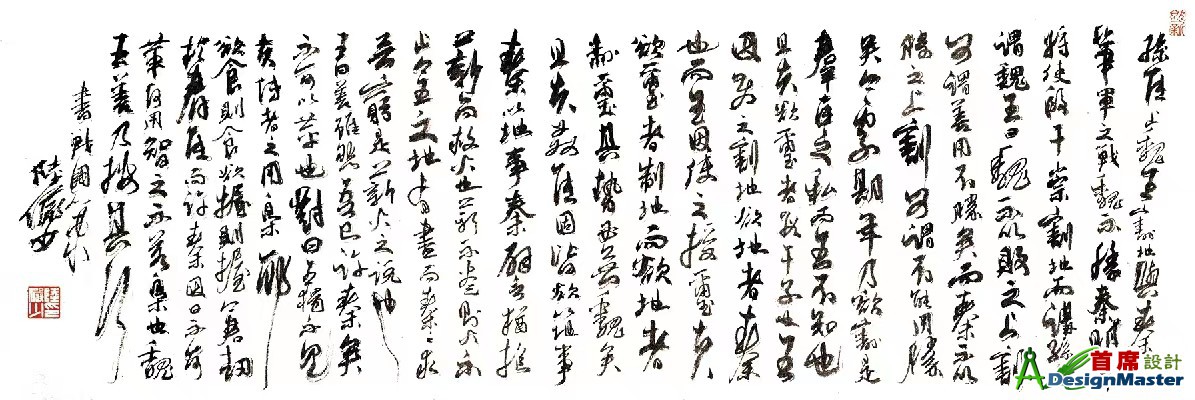 孫臣止魏王割地與秦
華軍之戰魏不勝秦明年
將使段干崇割地而講孫臣
謂魏王曰魏不以敗之上割
可謂善用不勝矣而秦不以
勝之上割可謂不能用勝
矣今處期年乃欲割是
羣臣之私而王不知也
且夫欲璽者段干子也王
因使之割地欲地者秦
也而王因使之授璽夫
欲璽者制地而欲地者
制璽其勢必無魏矣
且夫奸臣固皆欲以地事
秦以地事秦譬猶抱
薪而救火也薪不盡則火不
止今王之地有盡而秦之求
無窮是薪火之說也
王曰善雖然吾已許秦矣
不可以革也對曰王獨不見
夫博者之用梟邪
欲食則食欲握則握今君劫
於羣臣而許秦因曰不可
革何用智之不若梟也魏
王曰善乃按其行
書戰國
首席設計
DesignMaster